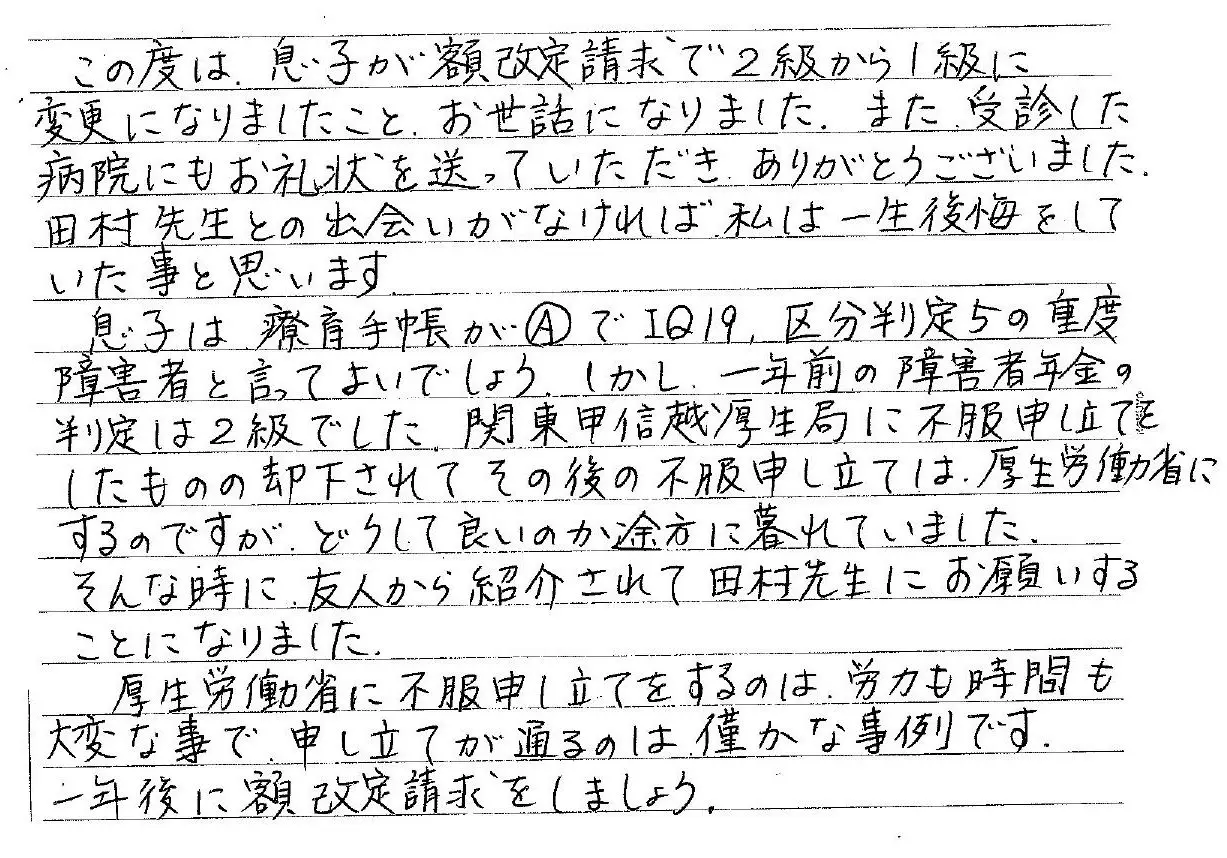 この度は、息子が額改定請求で2級から1級に
変更になりましたこと、お世話になりました。また、受診した
病院にもお礼状を送っていただき、ありがとうございました。
田村先生との出会いがなければ、私は一生後悔をして
いた事と思います。
息子は、療育手帳がⒶでIQ19、区分判定5の重度
障害者と言ってよいでしょう。しかし、一年前の障害者年金の
判定は2級でした。関東甲信越厚生局に不服申し立てを
したものの却下されてその後の不服申し立ては、厚生労働省に
するのですが、どうして良いのか途方に暮れていました。
そんな時に、友人から紹介されて田村先生にお願いする
ことになりました。
厚生労働省に不服申し立てをするのは、労力も時間も
大変な事で、申し立てが通るのは、僅かな事例です。
一年後に額改定請求をしましょう。